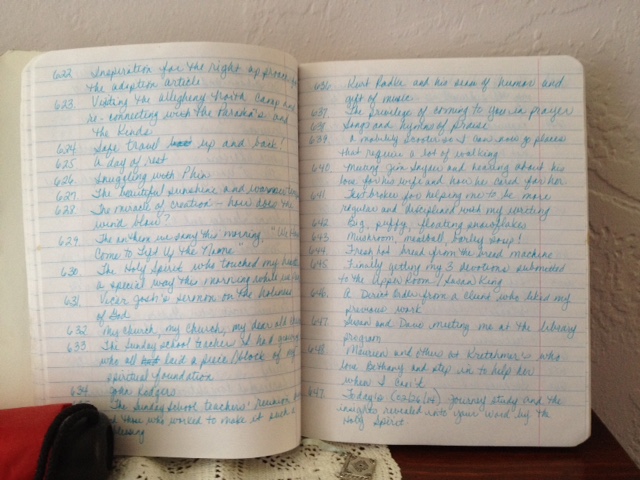 622. Inspiration for the right up
the adoption article
623. Visiting the Allegheny North Camp and
re-connecting with the and
the Kinds
624. Safe travel up and back!
625 A day of rest
626. Snuggling with Phin
627. The beautiful sunshine and warmer
628. The miracle of creation - how does the
wind blow?
629. The anthem we sang this morning, "We
Come to Lift Up the Name"
630. The Holy Spirit who touched my
a special way this morning while
631 Vicar Josh's sermon on the Holiness
of God
632 My church, my church, my dear old
633. The Sunday school teachers I had
who all laid a piece/block of my
spiritual foundation
634 John Rodgers
The Sunday school teachers' reunion
those who worked to make it such a
blessing
636. Kurt Radke and his sense of humor and
gift of music
637. The privilege of coming to you in prayer
638 Songs and hymns of praise
639 A mobility scooter so I can now go places
that require a lot of walking
640 Meeting Jim and hearing about his
love for his wife and how he cared for her
641 for helping me to be more
regular and disciplined with my writing
642 Big, puffy, floating snowflakes
643 Mushroom, meatball, barley soup!
644 Fresh hot bread from the bread machine
645 Finally getting my 3 devotions submitted
to the Upper Room/
646. A from a client who liked my
previous work
647. Susan and Dave meeting me at the library
program
648. Maureen and others at Kretchmer's who
love Bethany and step in to help her
when I can't
Today's journey study and the
insights revealed into your word by the
Holy Spirit